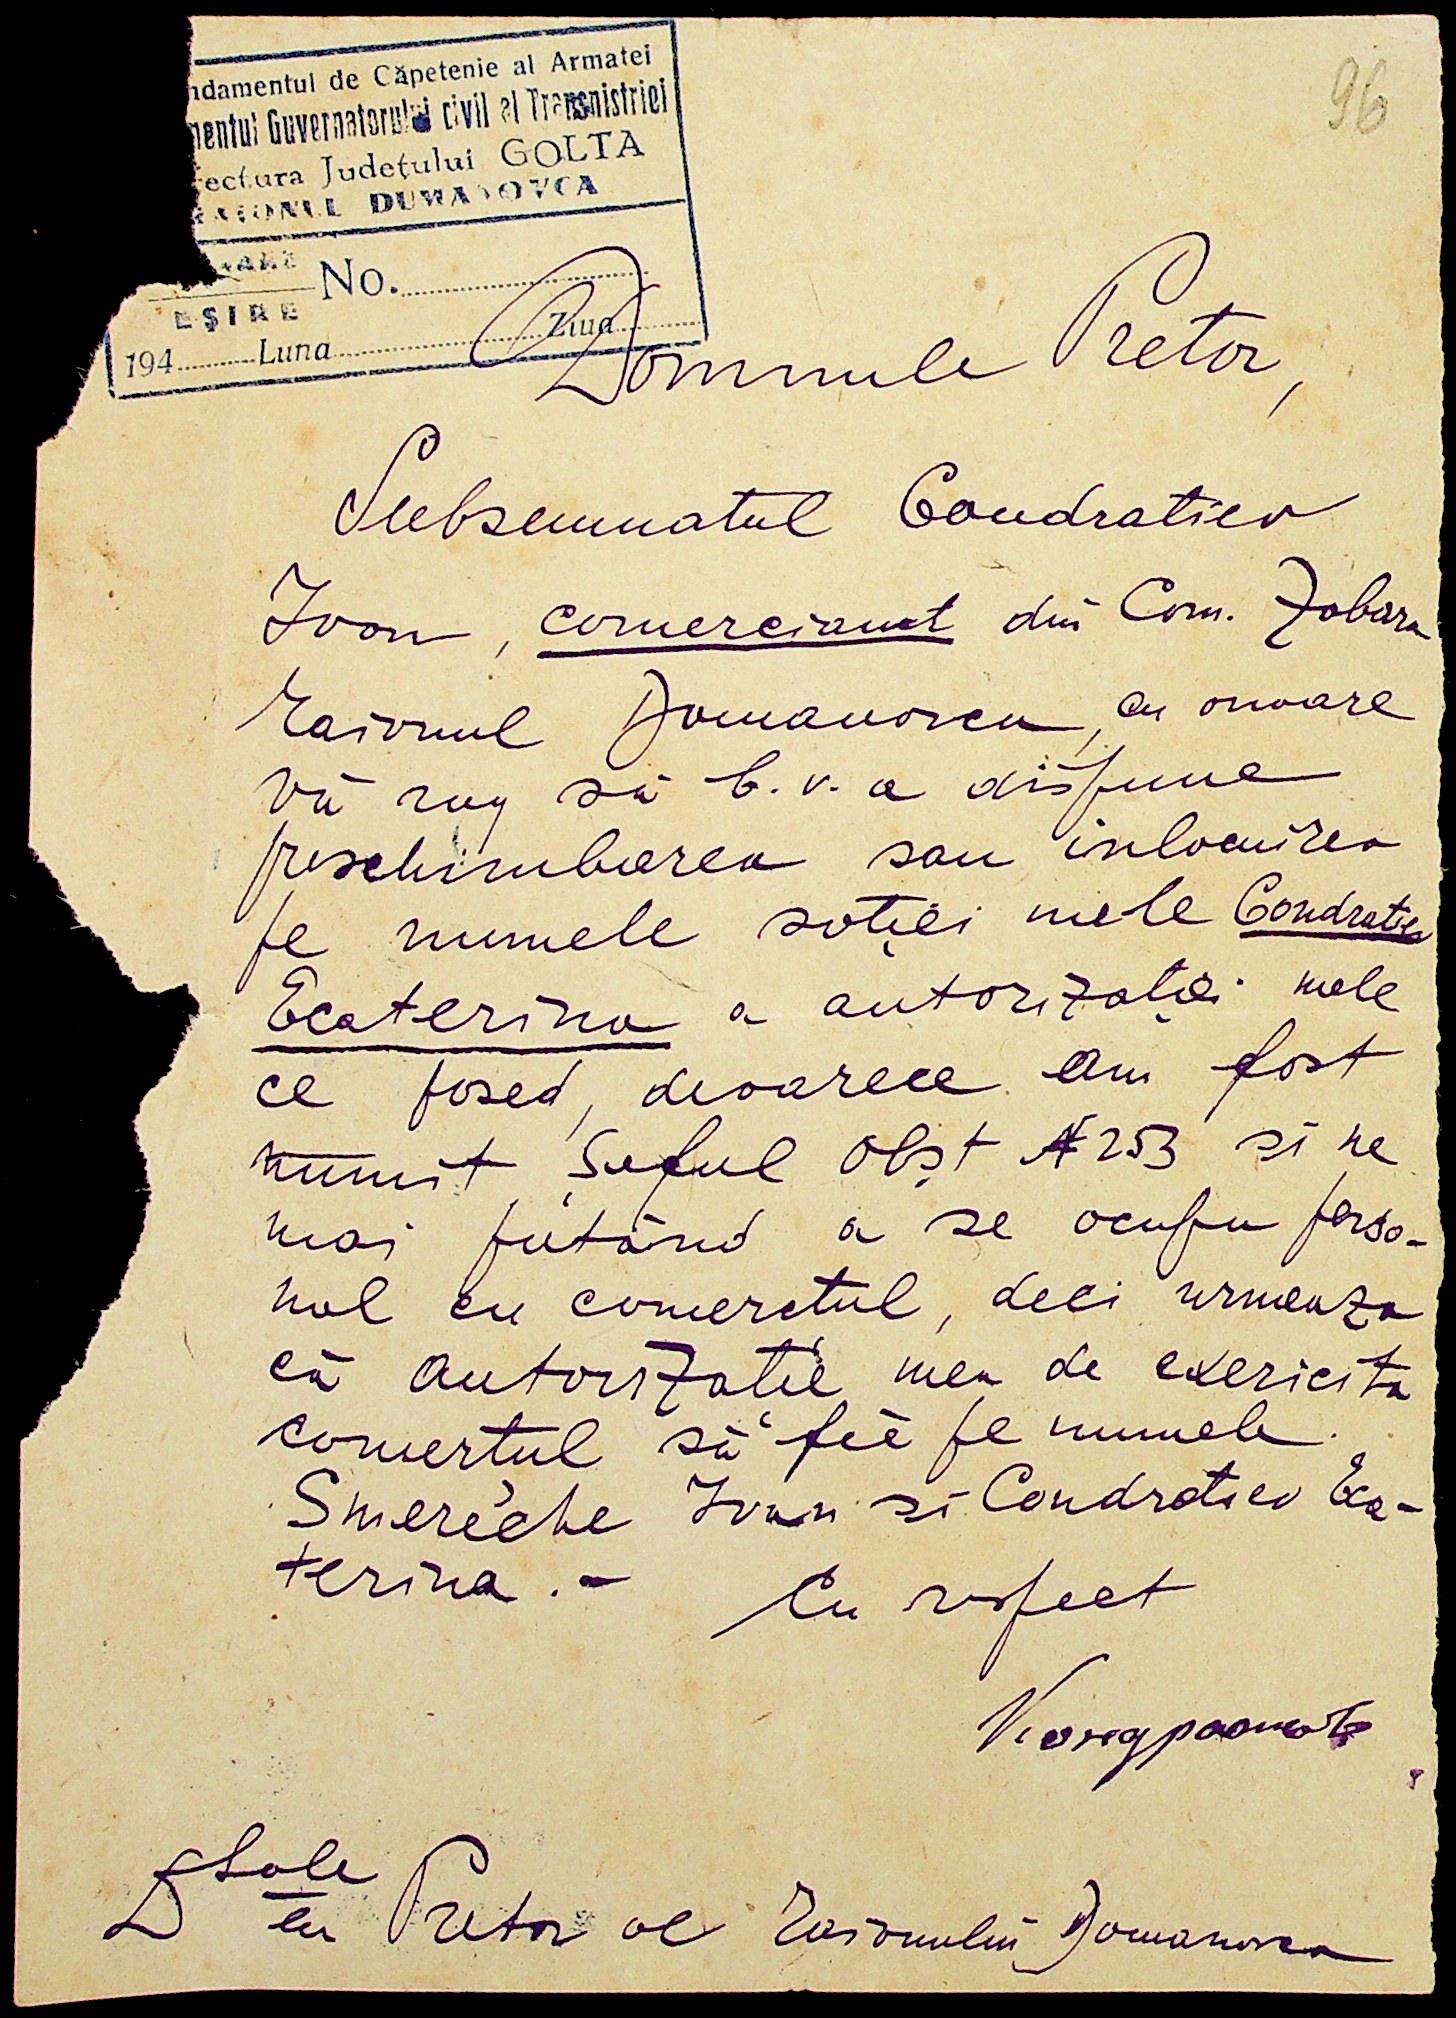 ndamentul de Căpetenie al Armatei
mentul Guvernatorului civil al Transnistriei
ectura Județului GOLTA
RAIONUL DUMANOVCA
No.
EȘIRE
194 Luna Ziua
96
Domnule Pretor,
Subsemnatul Condratiev
Ivon, comerciant din Com. Zabara
raionul Domanovca, cu onoare
vă rog să b. v. a dispune
preschimbarea sau inlocuirea
pe numele soției mele Condratiev
Ecaterina a autorizației mele
ce posed, deoarece am fost
numit Șeful Obșt № 253 si ne
mai putând a se ocupa perso-
nal cu comerctul, deci urmeaza
că autorizatie mea de exericita
comertul să fie pe numele
Smereche Ivan si Condratiev Eca-
terina.-
Cu respect
Кондратьевъ
D Sale
Pretor al Raionului Domanovca